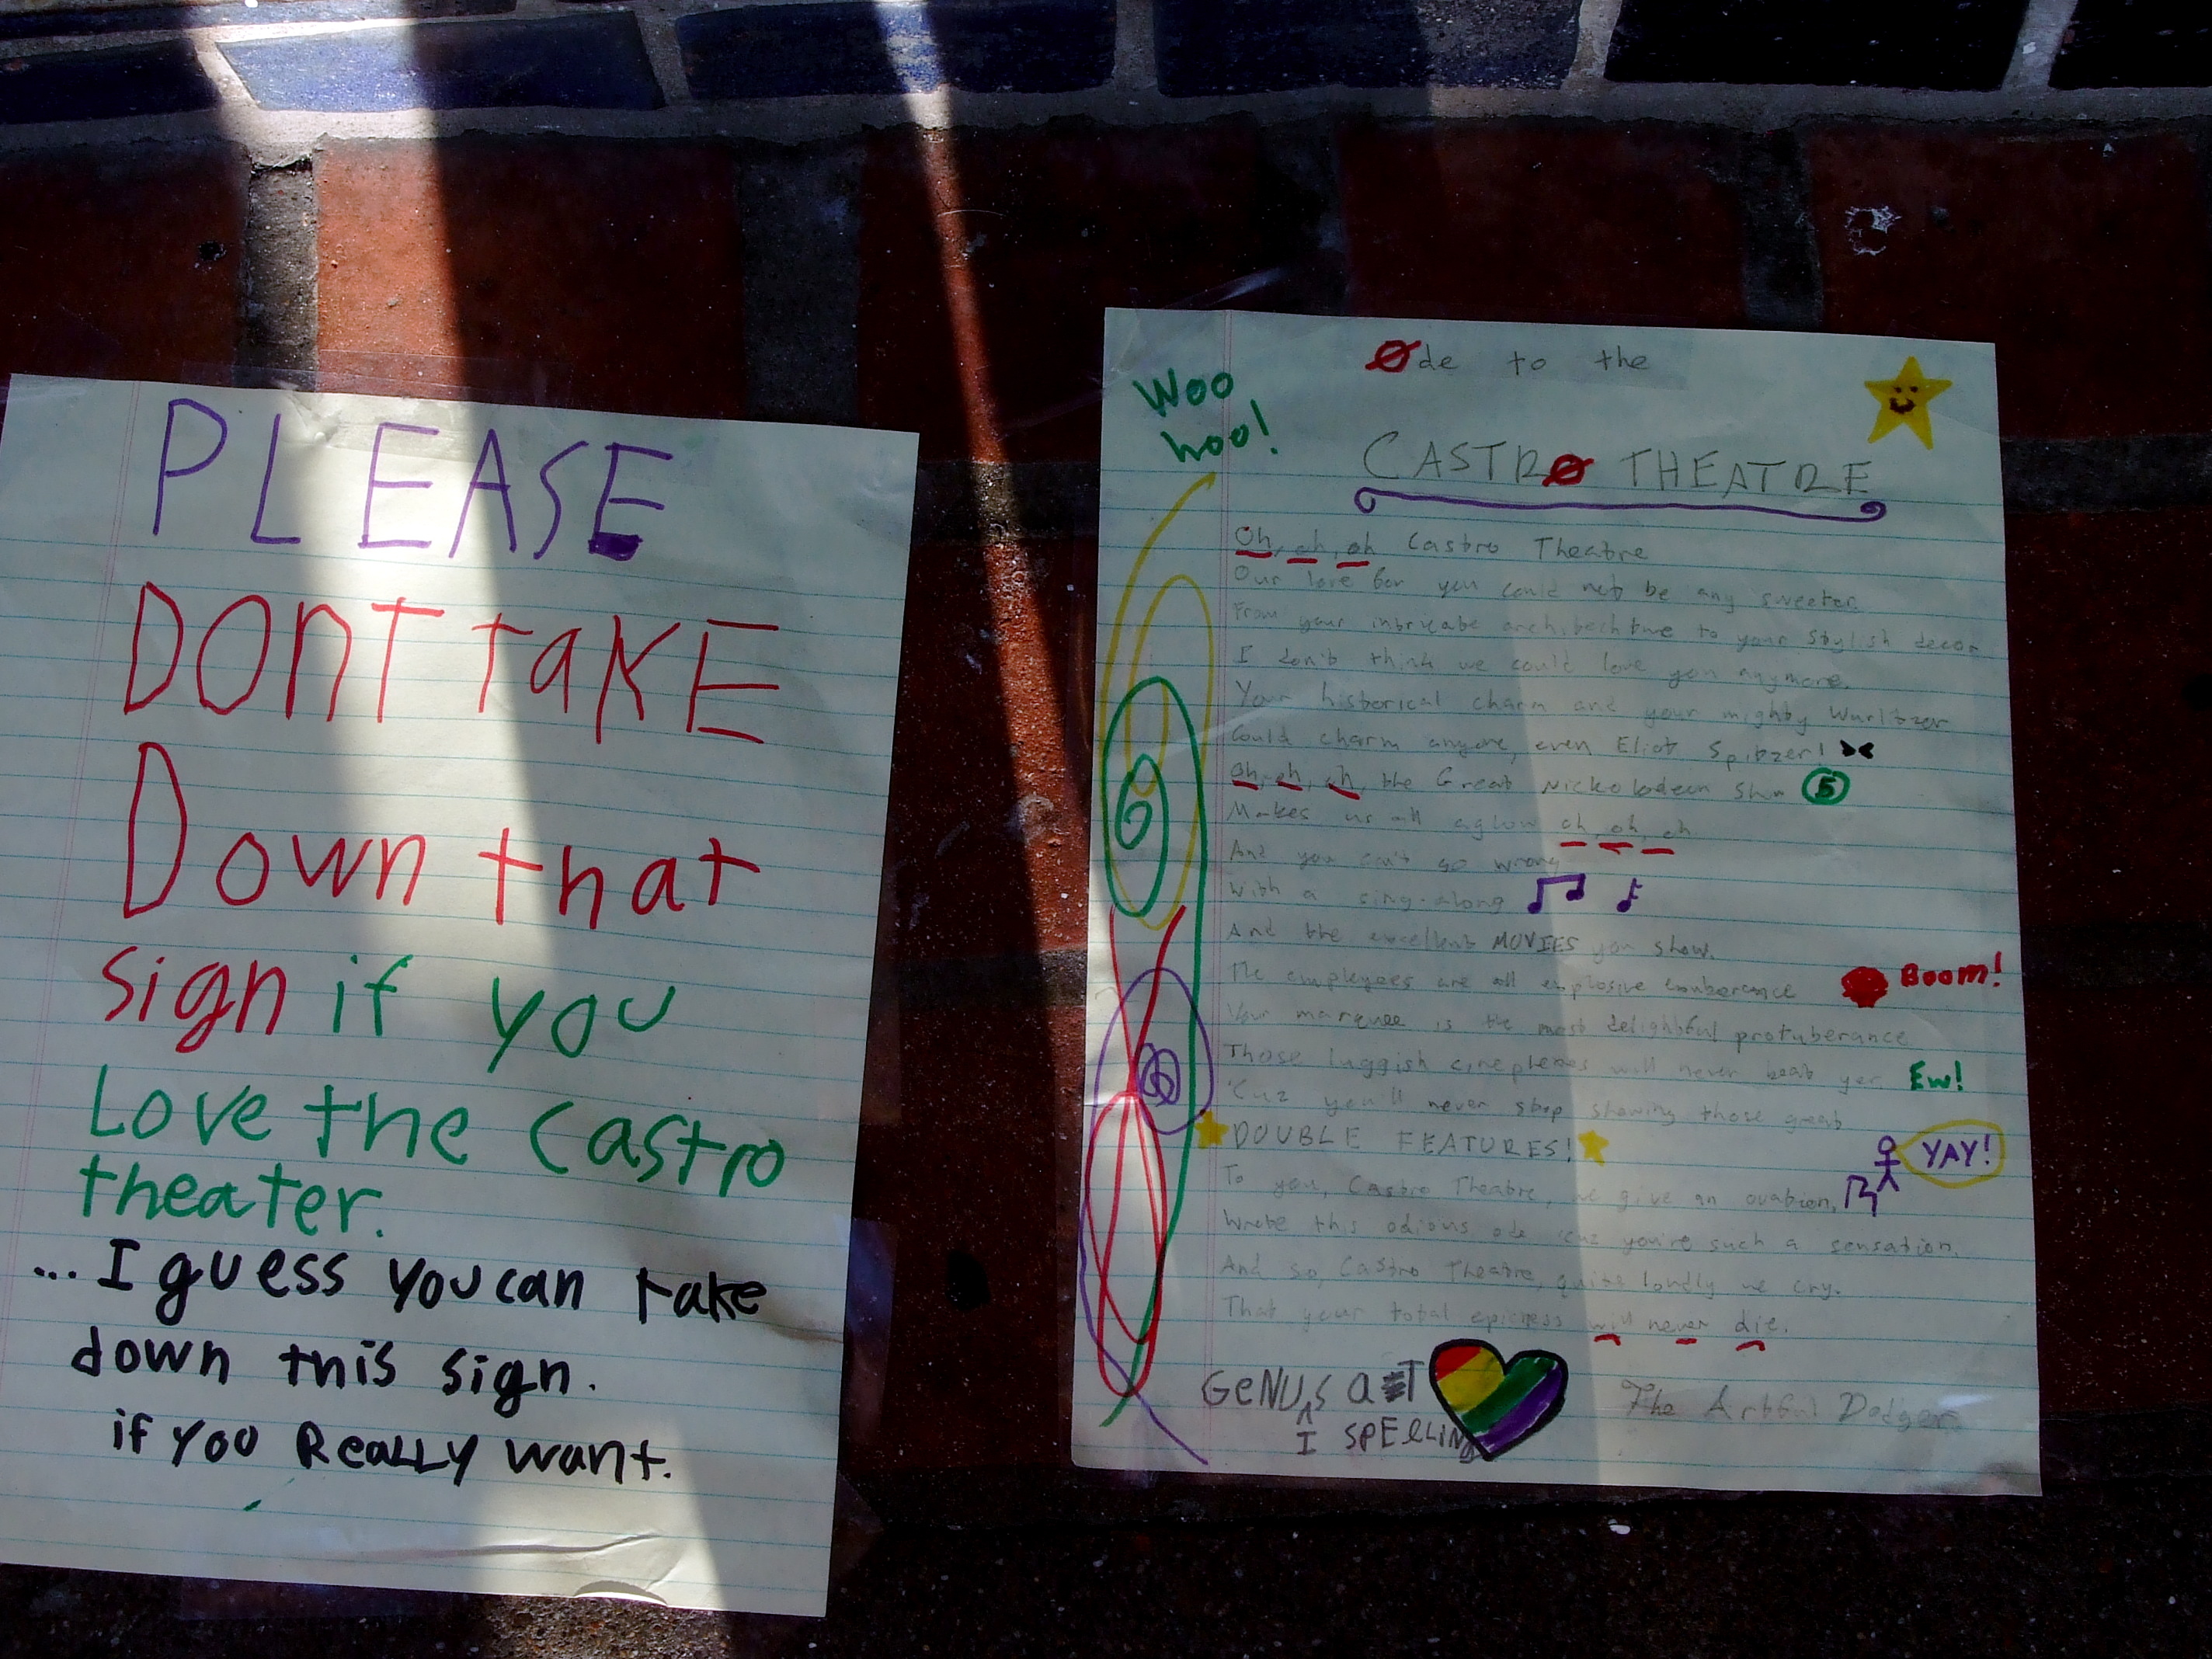 PLEASE
DONT TaKE
Down that
sign if you
Love the Castro
theater.
...I guess you can take
down this sign.
if you ReaLLY want.
Woo
hoo!
Øde to the
CASTRØ THEATRE
Oh, oh, oh Castro Theatre
Our love for you could not be any sweeter
From your intricate architechture to your stylish decor
I don't think we could love you anymore.
Your historical charm and your mighty Wurlitzer
Could charm anyone, even Eliot Spitzer!
Oh, oh, oh, the Great Nickelodeon Show 5
Makes us all aglow oh, oh, oh
And you can't go wrong
With a sing-along
And the excellent MOVIES you show.
The employees are all explosive exuberance
Boom!
Your marquee is the most delightful protuberance
Those luggish cineplexes will never beat yer
Ew!
'Cuz you'll never stop showing those great
DOUBLE FEATURES!
YAY!
To you, Castro Theatre, we give an ovation,
Wrote this odious ode 'cuz you're such a sensation.
And so, Castro Theatre, quite loudly we cry.
That your total epicness will never die.
GeNUIS
SPEllING
The Artful Dodger